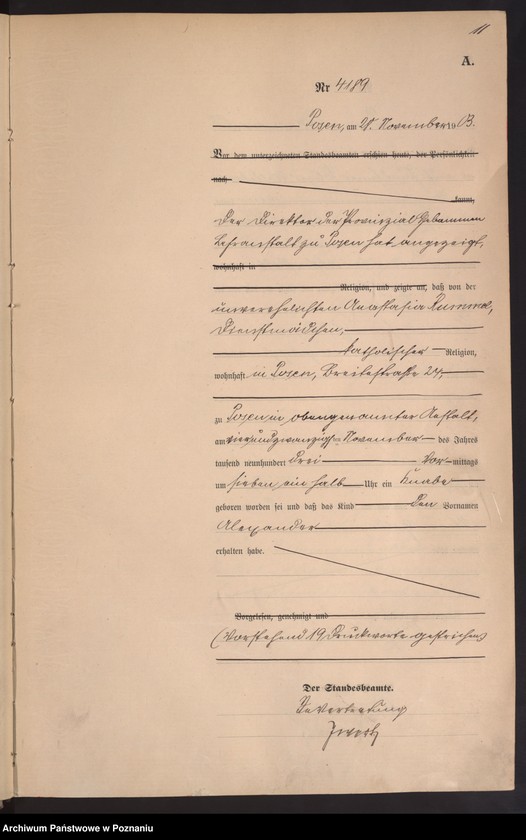 11
A.
Nr 4189
Posen, am 28. November 1903.
Vor dem unterzeichneten Standesbeamten erschien heute, der Persönlichkeit
nach
kannt,
Der Direktor der Provinzial Hebammen
Lehranstalt zu Posen hat angezeigt,
wohnhaft in
Religion, und zeigte an, daß von der
unverehelichten Anastasia Rummel,
Dienstmädchen,
katholischer Religion,
wohnhaft in Posen, Breitestraße 24,
zu Posen in obengenannter Anstalt,
am vierundzwanzigsten November des Jahres
tausend neunhundert drei Vormittags
um sieben ein halb Uhr ein Knabe
geboren worden sei und daß das Kind den Vornamen
Alexander
erhalten habe.
Vorgelesen, genehmigt und
(Vorstehend 19 Druckworte gestrichen)
Der Standesbeamte.
In Vertretung
Archiwum Państwowe w Poznaniu